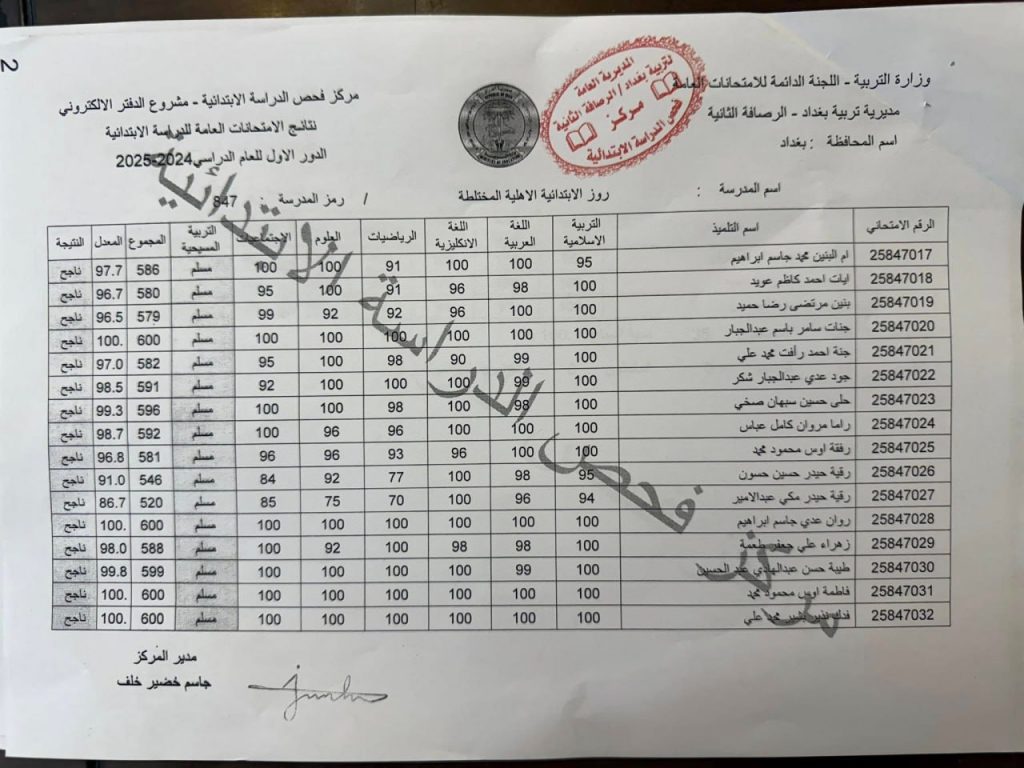 2
وزارة التربية - اللجنة الدائمة للامتحانات العامة
مديرية تربية بغداد - الرصافة الثانية
اسم المحافظة : بغداد
المديرية العامة
لتربية بغداد / الرصافة الثانية
مركز
فحص الدراسة الابتدائية
مركز فحص الدراسة الابتدائية - مشروع الدفتر الالكتروني
نتائج الامتحانات العامة للدراسة الابتدائية
الدور الاول للعام الدراسي 2024-2025
اسم المدرسة : روز الابتدائية الاهلية المختلطة / رمز المدرسة : 847
الرقم الامتحاني اسم التلميذ التربية الاسلامية اللغة العربية اللغة الانكليزية الرياضيات العلوم الاجتماعيات التربية المسيحية المجموع المعدل النتيجة
25847017 ام البنين محمد جاسم ابراهيم 95 100 100 91 100 100 مسلم 586 97.7 ناجح
25847018 ايات احمد كاظم عويد 100 98 96 91 100 95 مسلم 580 96.7 ناجح
25847019 بنين مرتضى رضا حميد 100 100 96 92 92 99 مسلم 579 96.5 ناجح
25847020 جنات سامر باسم عبدالجبار 100 100 100 100 100 100 مسلم 600 100. ناجح
25847021 جنة احمد رأفت محمد علي 100 99 90 98 100 95 مسلم 582 97.0 ناجح
25847022 جود عدي عبدالجبار شكر 100 99 100 100 100 92 مسلم 591 98.5 ناجح
25847023 حلى حسين سبهان صخي 100 98 100 98 100 100 مسلم 596 99.3 ناجح
25847024 راما مروان كامل عباس 100 100 100 96 96 100 مسلم 592 98.7 ناجح
25847025 رفقة اوس محمود محمد 100 100 96 93 96 96 مسلم 581 96.8 ناجح
25847026 رقية حيدر حسين حسون 95 98 100 77 92 84 مسلم 546 91.0 ناجح
25847027 رقية حيدر مكي عبدالامير 94 96 100 70 75 85 مسلم 520 86.7 ناجح
25847028 روان عدي جاسم ابراهيم 100 100 100 100 100 100 مسلم 600 100. ناجح
25847029 زهراء علي جعفر طعمة 100 98 98 100 92 100 مسلم 588 98.0 ناجح
25847030 طيبة حسن عبدالهادي عبد الحسين 100 99 100 100 100 100 مسلم 599 99.8 ناجح
25847031 فاطمة اوس محمود محمد 100 100 100 100 100 100 مسلم 600 100. ناجح
25847032 فدك محمد علي 100 100 100 100 100 100 مسلم 600 100. ناجح
مركز فحص الدراسة الابتدائية
مدير المركز
جاسم خضير خلف